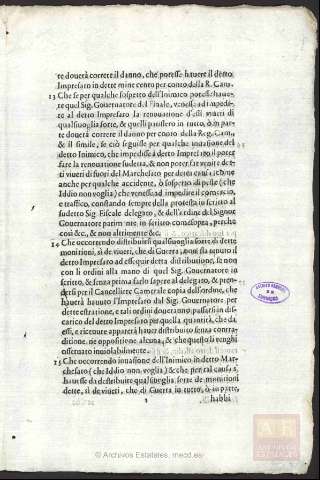 te douerà correre il danno, che potesse hauere il detto
Impresaro in dette mine cento per conto della R. Cam.
13 Che se per qualche sospetto dell'Inimico potesse haue-
re quel Sig. Gouernatore del Finale, venesse ad impedi-
re al detto Impresaro la renouatione d'essi viueri di
qualsiuoglia sorte, & quelli patissero in tutto, ò in parte
douerà correre il danno per conto della Reg. Cam.
& il simile, se ciò seguisse per qualche inuasione del
detto Inimico, che impedisse à detto Impresaro il poter
fare la renouatione sudetta, & non poter far vscire det-
ti viueri fuori del Marchesato per dette cause, e che
anche per qualche accidente, ò sospetto di peste (che
Iddio non voglia) che venesse ad impedire il comercio,
e traffico, constando sempre della protesta in scritto al
sudetto Sig. Fiscale delegato, & dell'ordine del Signor
Gouernatore parimente in scritto come sopra, perche
così &c. & non altrimente &c.
14 Che occorrendo distribuirsi qualsiuoglia sorte di dette
monitioni, sì de viueri, che di Guerra, non sia tenuto il
detto Impresaro ad esequir detta distributione, se non
con li ordini alla mano di quel Sig. Gouernatore in
scritto, & senza prima farlo sapere al delegato, & pren-
dersi per il Cancelliere Camerale copia dell'ordine, che
hauerà hauuto l'Impresaro dal Sig. Gouernatore per
dette estrattione, e tali ordini doueranno passarsi in dis-
carico del detto Impresaro per quella quantità, che da
essi, e ricuute apparirà hauer distribuito senza contra-
ditione, ne oppositione alcuna, & che questo li venghi
osseruato inuiolabilmente.
15 Che occorrendo inuasione dell'Inimico in detto Mar-
chesato (che Iddio non voglia) & che per tal causa s'
hauesse da distribuire qualsiuoglia sorte de monitioni
dette, sì de viueri, che di Guerra in tutto, ò in parte,
1
habbi
© Archivos Estatales, mecd.es